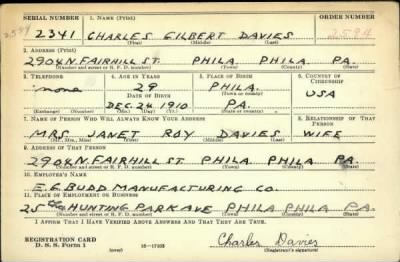 SERIAL NUMBER 1. NAME (Print) ORDER NUMBER
2341 CHARLES GILBERT DAVIES 2594
(First) (Middle) (Last)
2. ADDRESS (Print)
2904 N. FAIRHILL ST. PHILA. PHILA. PA.
(Number and street or R. F. D. number) (Town) (County) (State)
3. TELEPHONE 4. AGE IN YEARS 5. PLACE OF BIRTH 6. COUNTRY OF CITIZENSHIP
none 29 PHILA. USA
DATE OF BIRTH (Town or county)
DEC. 24 1910 PA.
(Exchange) (Number) (Mo.) (Day) (Yr.) (State or country)
7. NAME OF PERSON WHO WILL ALWAYS KNOW YOUR ADDRESS 8. RELATIONSHIP OF THAT PERSON
MRS. JANET ROY DAVIES WIFE
(Mr., Mrs., Miss) (First) (Middle) (Last)
9. ADDRESS OF THAT PERSON
2904 N. FAIRHILL ST PHILA PHILA PA.
(Number and street or R. F. D. number) (Town) (County) (State)
10. EMPLOYER'S NAME
E. G. BUDD MANUFACTURING CO.
11. PLACE OF EMPLOYMENT OR BUSINESS
25 HUNTING PARK AVE PHILA PHILA PA.
(Number and street or R. F. D. number) (Town) (County) (State)
I AFFIRM THAT I HAVE VERIFIED ABOVE ANSWERS AND THAT THEY ARE TRUE.
REGISTRATION CARD
D. S. S. Form 1 (over) 16-17105
Charles Davies
(Registrant's signature)